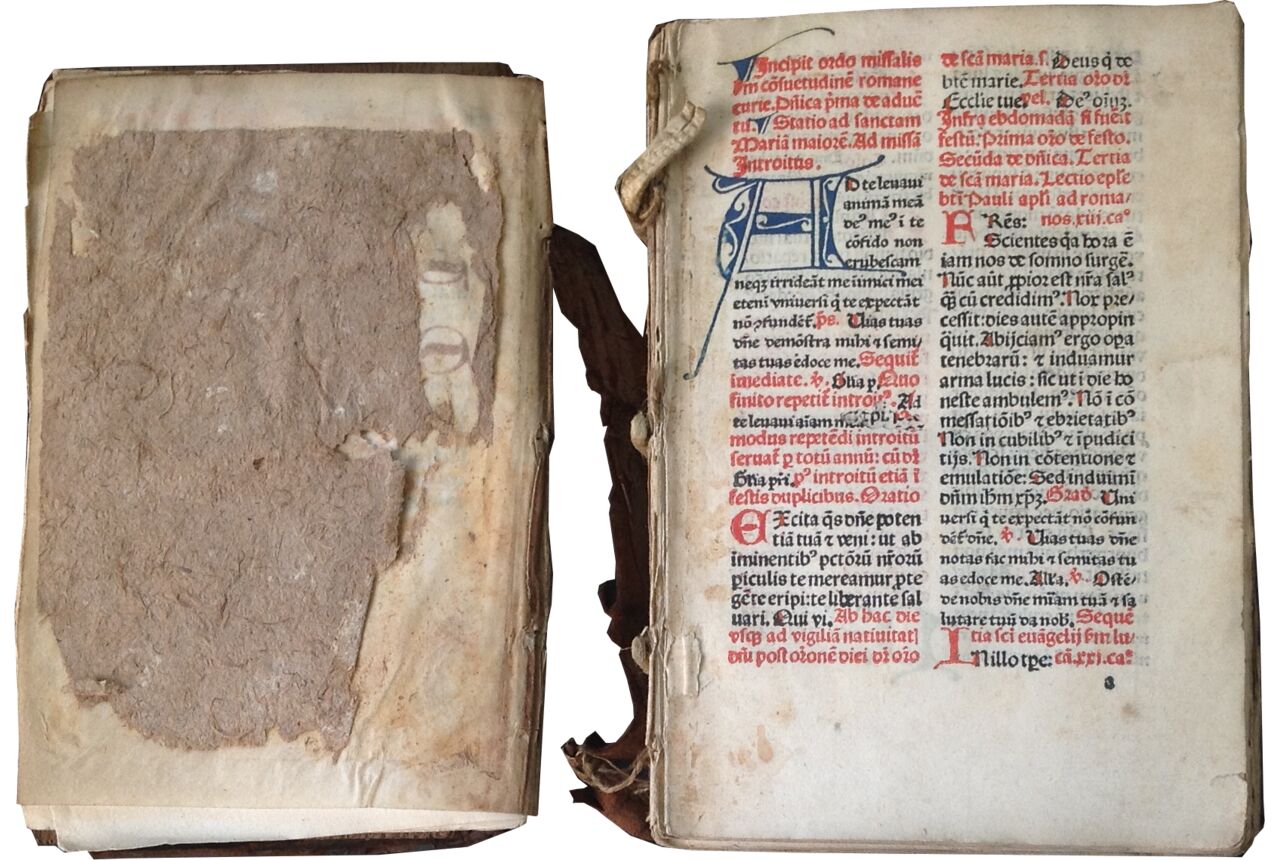 Incipit ordo missalis
ſm cōſuetudinē romane
curie. Dñica p̄ma de aduē
tu. Statio ad sanctam
Mariā maiorē. Ad missā
Introitus.
AD te leuaui
animā meā
deꝰ meꝰ ī te
cōfido non
erubescam
neqꝫ irrideāt me inimici mei
eteni vniuersi q̄ te expectāt
nō ꝯfundēt̄. ps. Uias tuas
dñe demōstra mihi ⁊ semi/
tas tuas edoce me. Sequit̄
imediate. ℣. Glia p̄. Quo
finito repetit̄ introiꝰ. Ad
te leuaui aīam
modus repetēdi introitū
seruat̄ p totū annū: cū dr̄
Glia pr̄i. pꝰ introitū etiā ī
festis duplicibus. Oratio
EXcita q̄s dñe poten
tiā tuā ⁊ veni: ut ab
iminentibꝰ pctōrū nr̄orū
piculis te mereamur p̱te
gēte eripi: te liberante sal
uari. Qui vi. Ab hac die
vsqꝫ ad vigiliā natiuitat
dñi post or̄onē diei dr̄ or̄o
de scā maria. s. Deus q̄ de
btē marie. Tertia or̄o dr̄
Ecclie tue. vel. Deꝰ oīuꝫ.
Infra ebdomadā si fuēit
festū: Prima or̄o de festo.
Secūda de dñica. Tertia
de scā maria. Lectio ep̄le
bt̄i Pauli apl̄i ad roma/
nos. xiii. caº
FRēs:
Scientes q̄a hora ē
iam nos de somno surgē.
Nūc aūt ꝓpior est nr̄a salꝰ
q̄ꝫ cū credidimꝰ. Nox pre/
cessit: dies autē appropin
q̄uit. Abijciamꝰ ergo oꝑa
tenebrarū: ⁊ induamur
arma lucis: sic ut i die ho
neste ambulemꝰ. Nō ī cō
messatiōibꝰ ⁊ ebrietatibꝰ
Non in cubilibꝰ ⁊ īpudici
tijs. Non in cōtentione ⁊
emulatiōe: Sed induimī
dñm ihm xp̄ꝫ. Grad. Uni
uersi q̄ te expectāt nō cōfun
dēt̄ dñe. ℣. Uias tuas dñe
notas fac mihi ⁊ semitas tu
as edoce me. All'a. ℣. Ostē/
de nobis dñe mīam tuā ⁊ sa
lutare tuū da nob. Sequē
tia sci euāgelij ſm lu/
INillo tp̄e: cā. xxi. caº
a